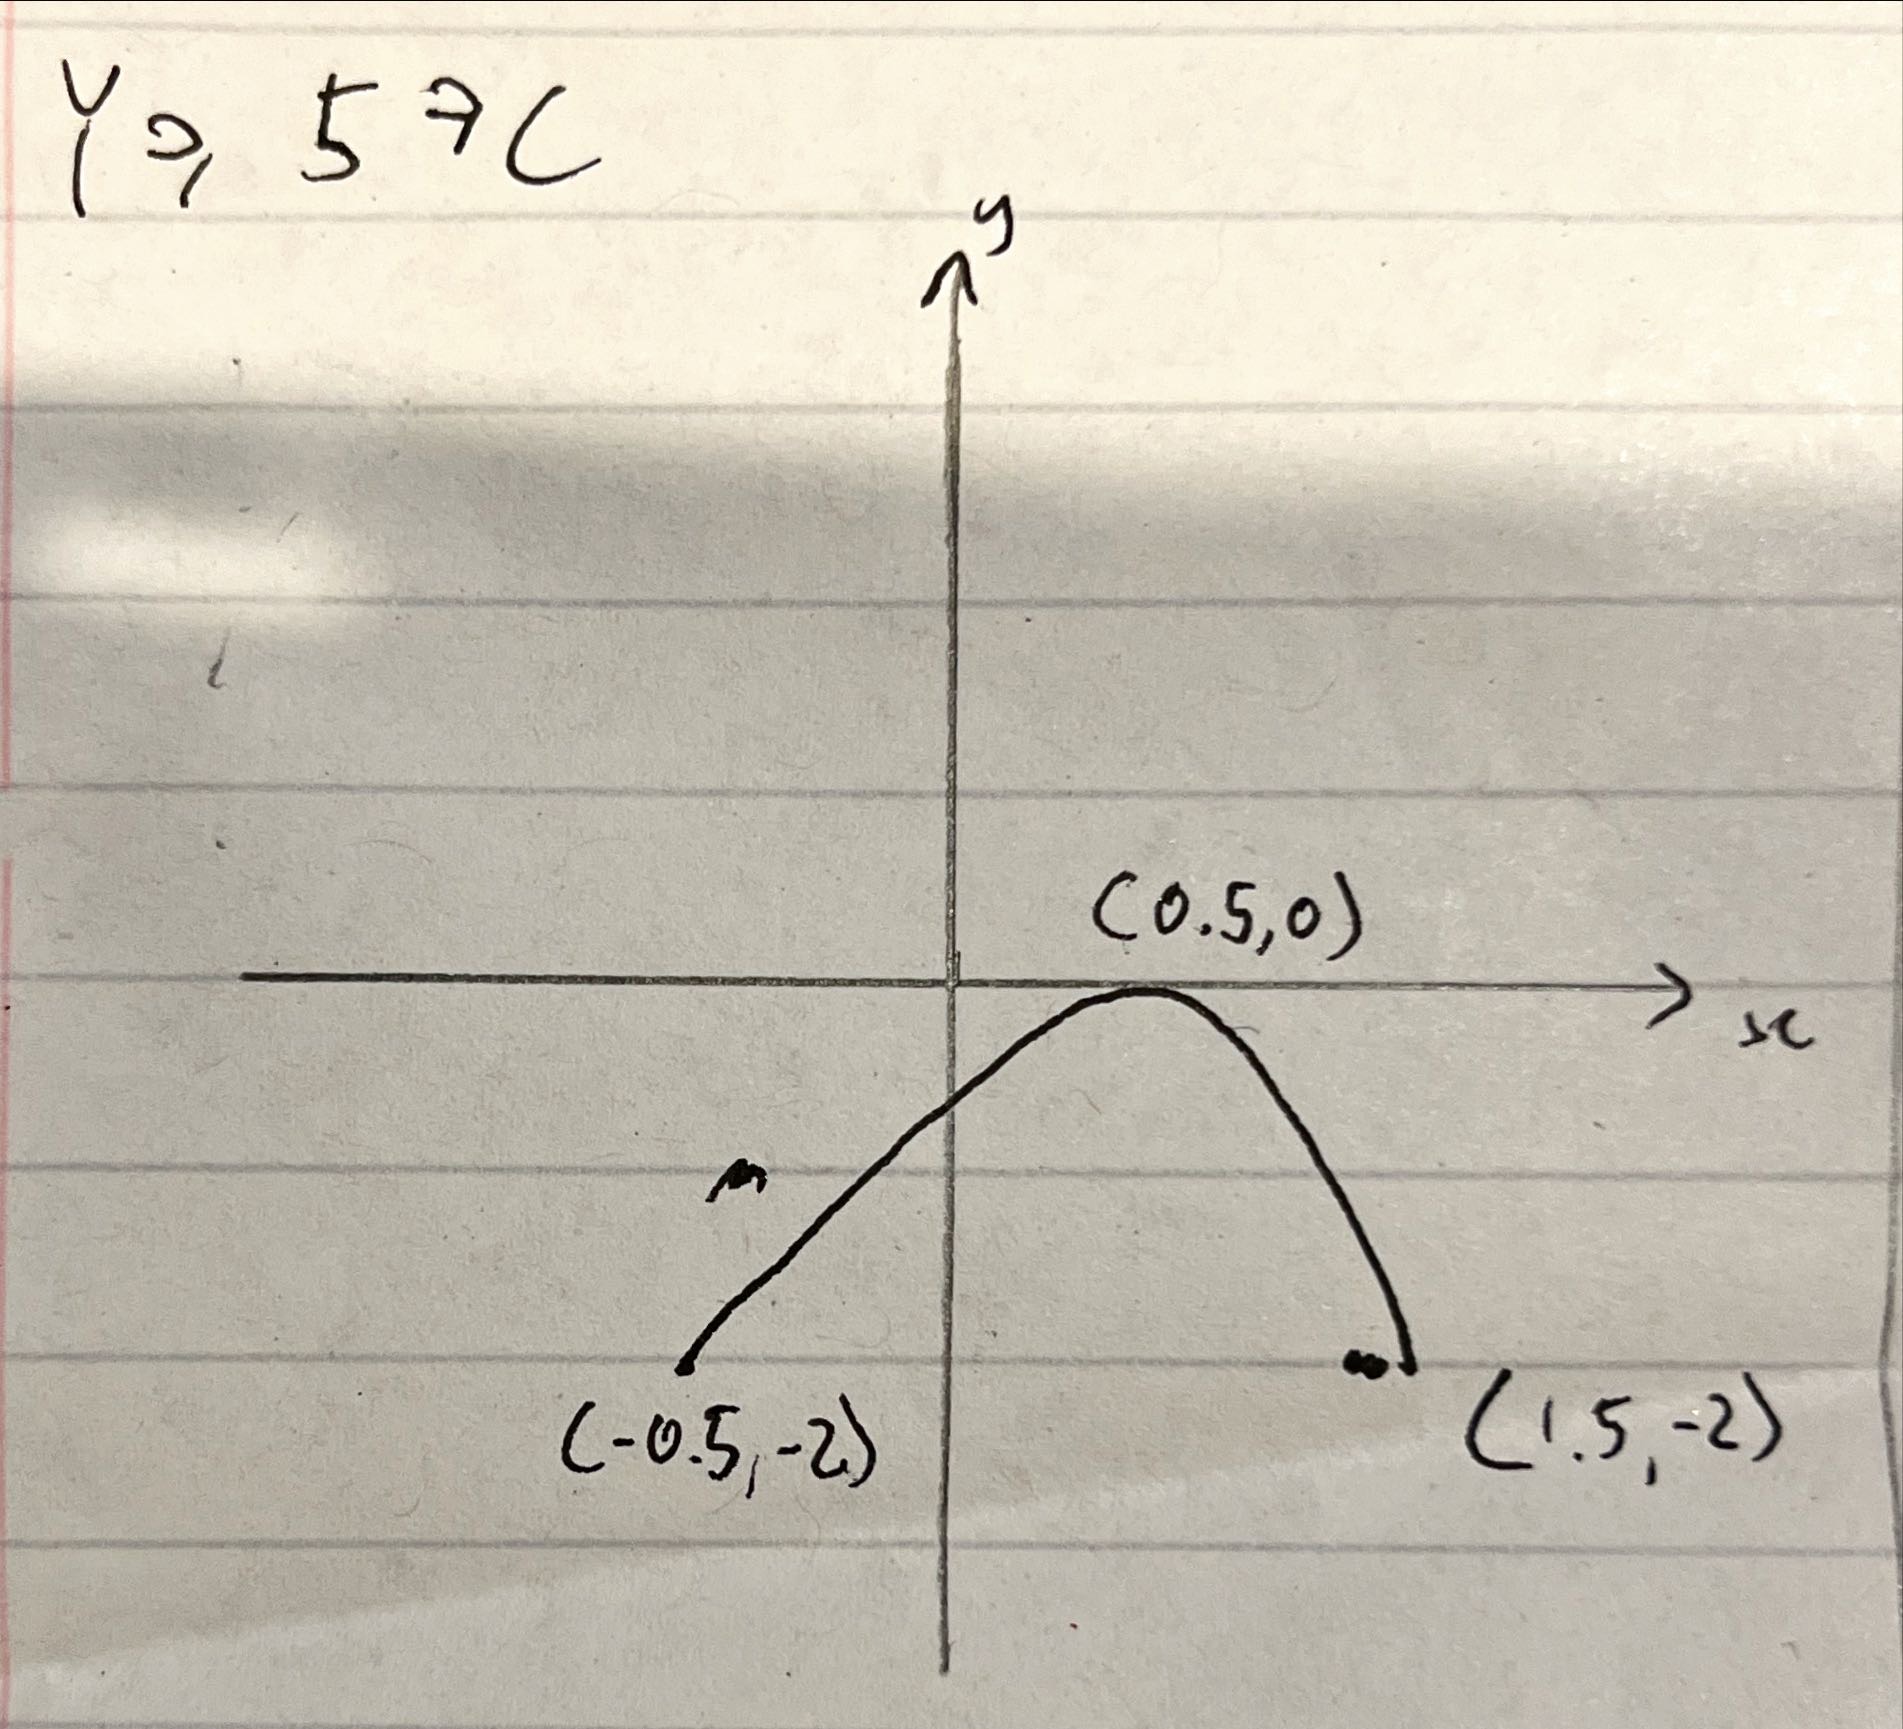 Y2, 57C
y
(0.5,0)
x
(-0.5,-2)
(1.5,-2)